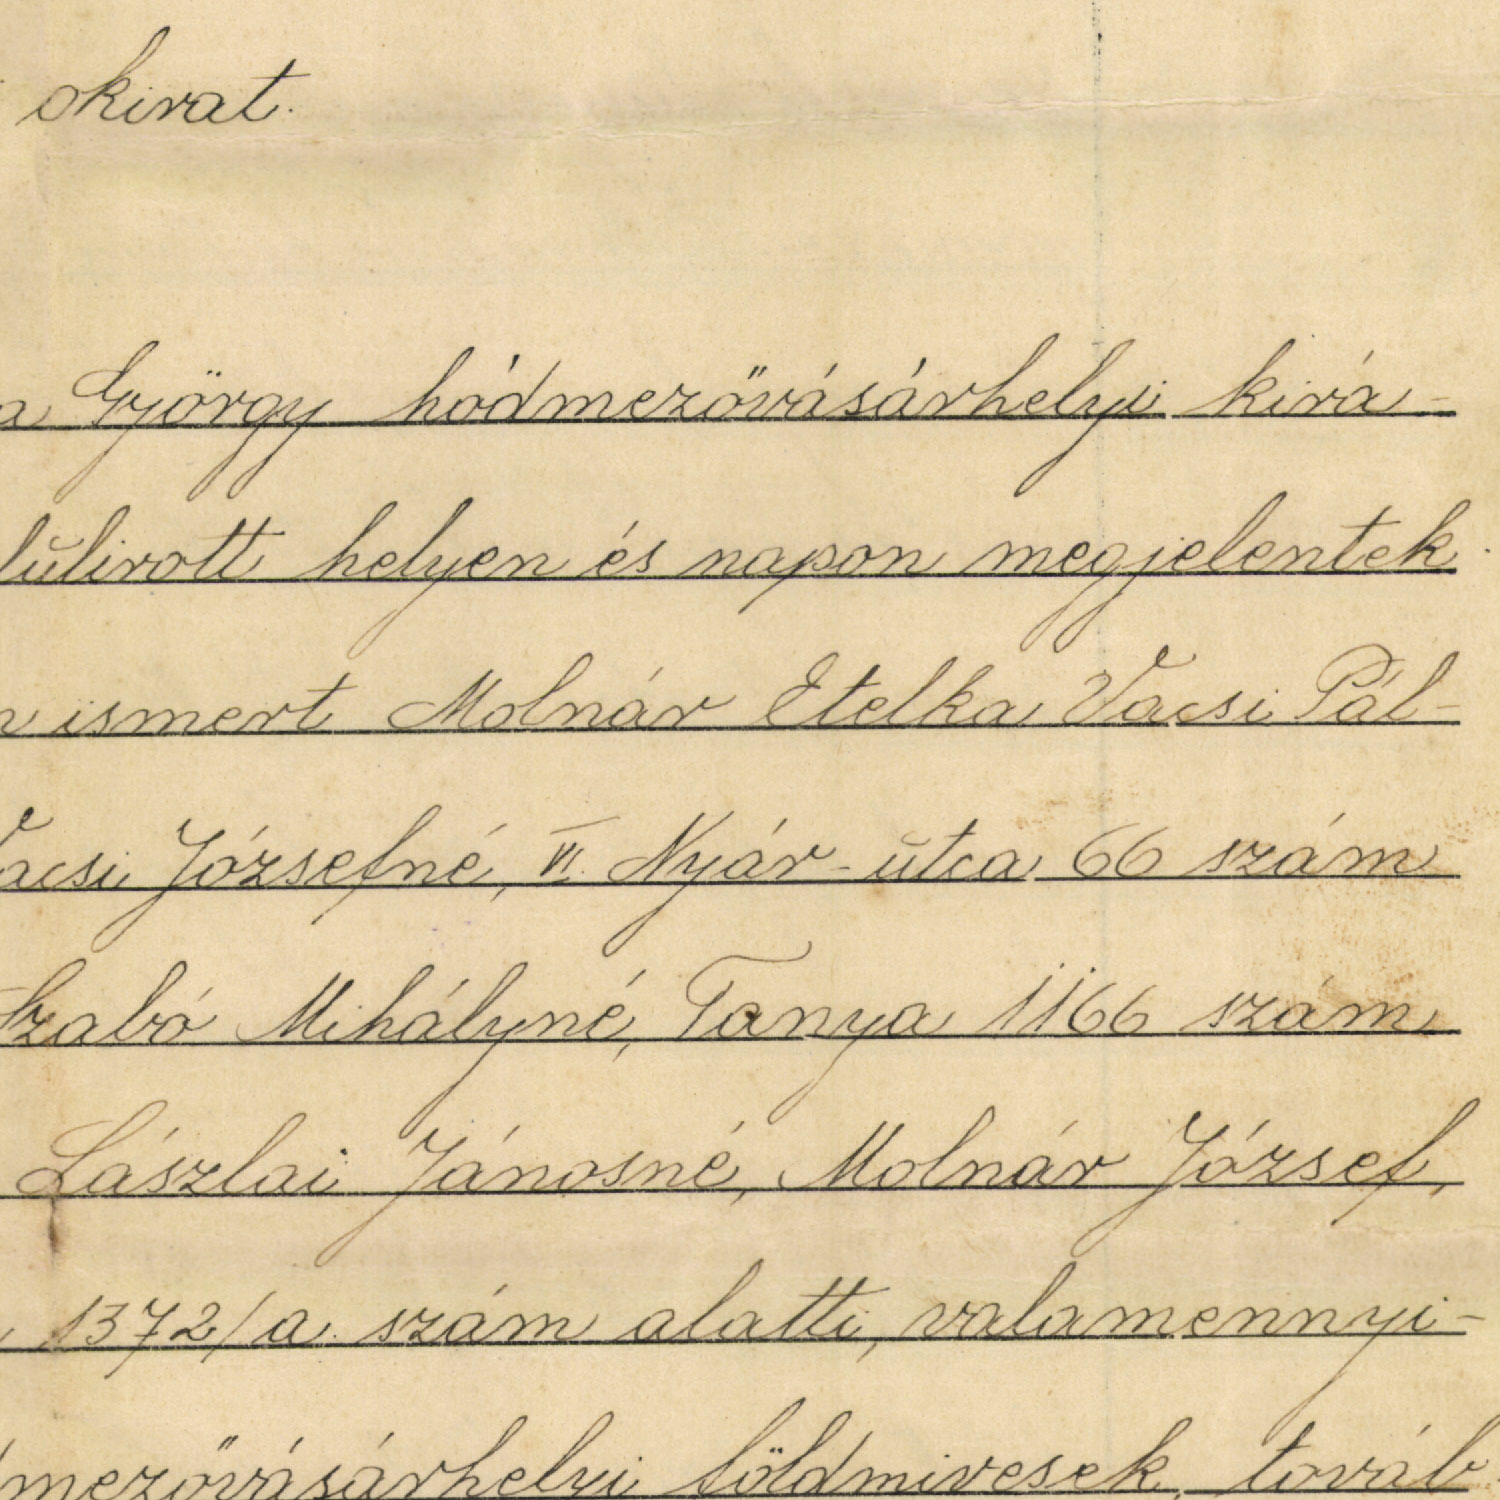 okirat.
a György hódmezővásárhelyi kirá-
lulirott helyen és napon megjelentek
n ismert Molnár Etelka Vacsi Pál-
acsi Józsefné, VI. Nyár-utca 66 szám
Szabó Mihályné, Tanya 1166 szám
Lászlai Jánosné, Molnár József,
1372/a. szám alatti, valamennyi-
mezővásárhelyi földmivesek, továb